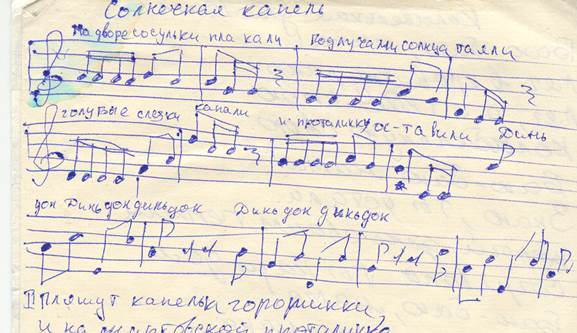 Солнечная капель
На дворе сосульки пла кали Под лучами солнца таяли
голубые слезки капали и проталинку ос-тавили Динь
дон Динь дондиньдон Динь дон диньдон
II Пляшут капельки, горошинки,
и на проталинке